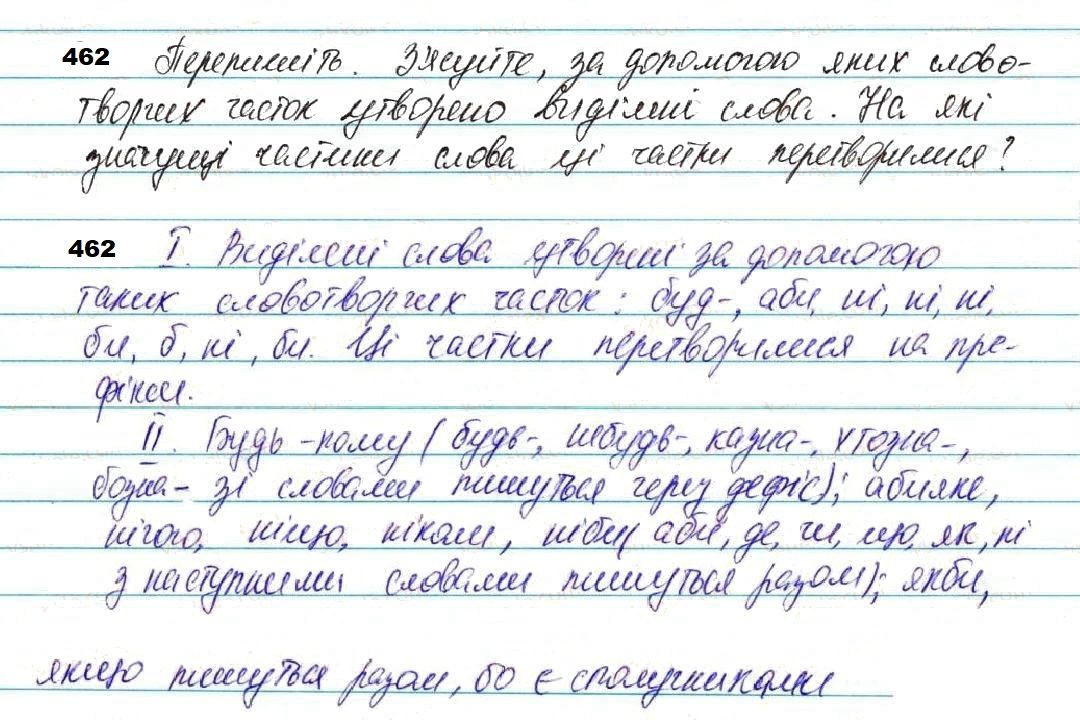 462 Перепишіть. З'ясуйте, за допомогою яких слово-
творчих часток утворено виділені слова. На які
значущі частини слова ці частки перетворилися?
462 І. Виділені слова утворені за допомогою
таких словотворчих часток: буд-, аби, ні, ні, ні,
би, б, ні, би. Ці частки перетворилися на пре-
фікси.
ІІ. Будь-кому (будь-, небудь-, казна-, хтозна-,
бозна- зі словами пишуться через дефіс); абияке,
нічого, ніщо, ніколи, ніби (аби, де, чи, що, як, ні
з наступними словами пишуться разом); якби,
якщо пишуться разом, бо є сполучниками